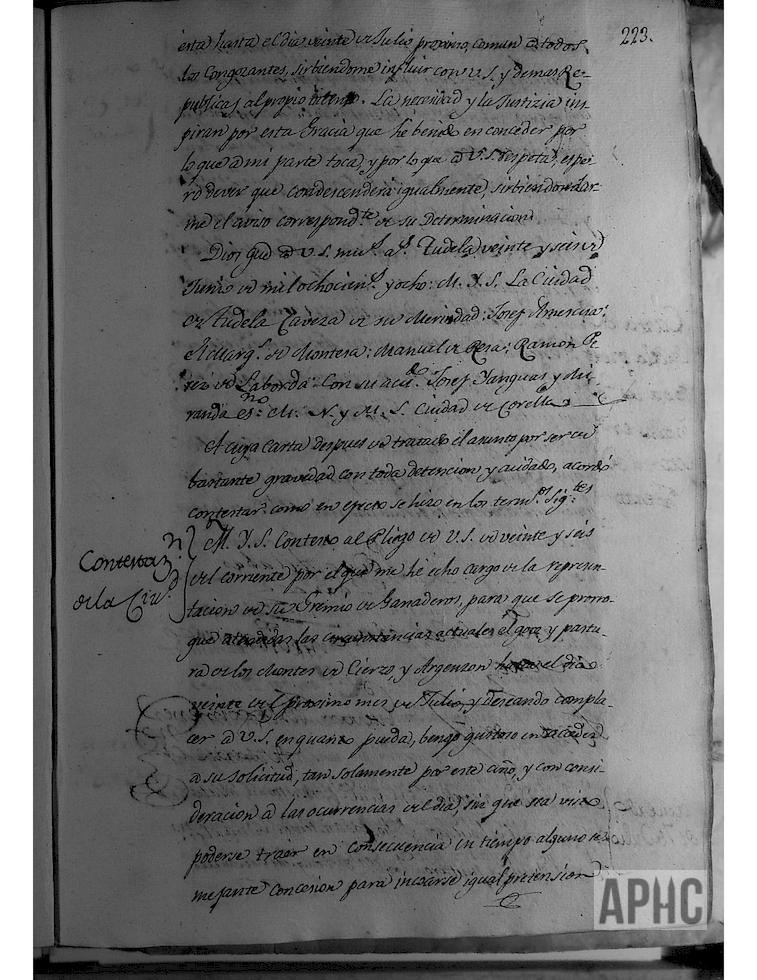 223.
esta hasta el dia veinte de Julio proximo comun a todos
los Congozantes, sirbiendome influir con V. S. y demas Re-
publicas al propio intento. La necesidad y la Justizia ins-
piran por esta Gracia que he benido en conceder por
lo que a mi parte toca, y por lo que a V. S. respeta, espe-
ro dever que condescenderá igualmente, sirbiendose dar-
me el aviso correspond.te de su Determinacion
Dios gue a V. S. mu.s a.s Tudela veinte y seis de
Junio de mil ochocien.s y ocho: M. Y. S. La Ciudad
de Tudela Caveza de su Merindad: Josef
El Marq.s de Montesa: Manuel de Ramon Pe
rez de Laborda: Con su acu.do Josef Yanguas y Mi-
randa es.no: M. N. y M. L. Ciudad de Corella
A cuya Carta despues de tratado el asunto por ser de
bastante gravedad con toda detencion y cuidado, acordó
contestar como en efecto se hizo en los term.s sig.tes
Contestaz.n
de la Ciu.d
M. Y. S. Contesto al Pliego de V. S. de veinte y seis
del corriente por el que me he echo cargo de la represen-
tacion de su Gremio de Ganaderos, para que se prorro-
gue atendidas las circunstancias actuales el goze y pastu-
ra de los Montes de Cierzo, y Argenzon hasta el dia
veinte del proximo mes de Julio, y deseando compla-
cer a V. S. en quanto pueda, bengo gustoso en acceder
a su solicitud, tan solamente por este año, y con consi-
deracion a las ocurrencias del dia, sin que sea visto
poderse traer en consecuencia en tiempo alguno se-
mejante concesion para incoarse igual pretension
APHC